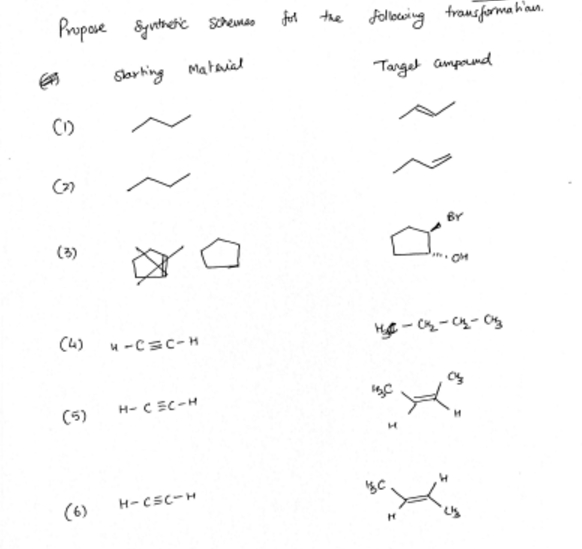 Propose Synthetic Schemes for the following transformation.
Starting Material Target compound
(1)
(2)
(3) Br
OH
(4) H-C≡C-H H3C-CH2-CH2-CH3
(5) H-C≡C-H H3C CH3
H H
(6) H-C≡C-H H3C H
H CH3